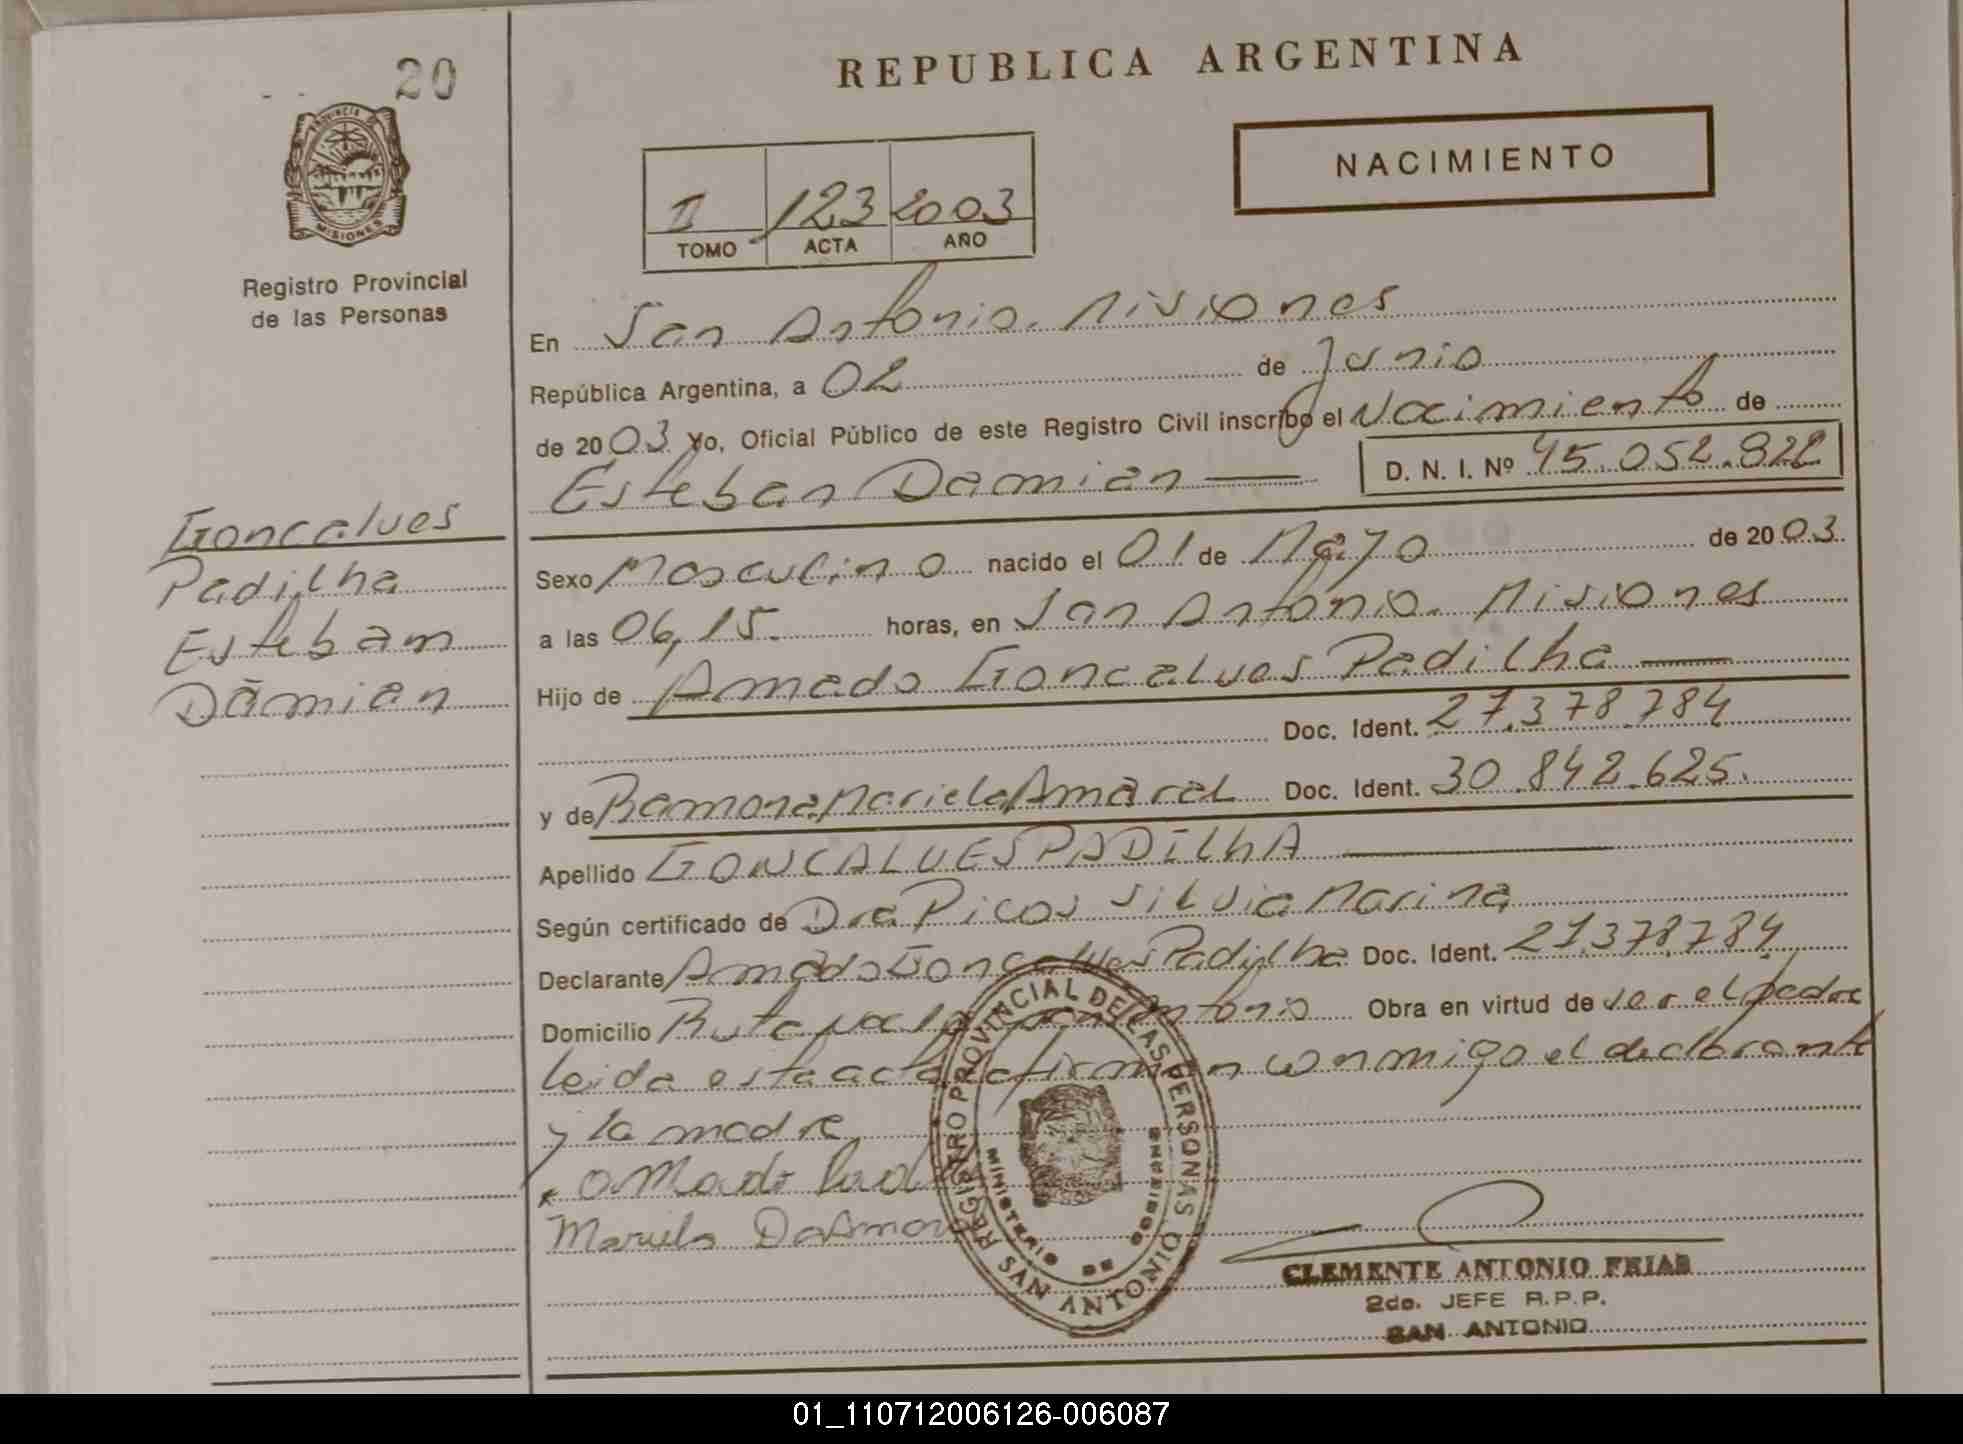 20
PROVINCIA DE
MISIONES
Registro Provincial
de las Personas
Goncalves
Padilha
Esteban
Damián
REPUBLICA ARGENTINA
NACIMIENTO
II 123 2003
TOMO ACTA AÑO
En San Antonio. Misiones
República Argentina, a 02 de Junio
de 2003 Yo, Oficial Público de este Registro Civil inscribo el Nacimiento de
Esteban Damián D. N. I. Nº 45.052.822
Sexo Masculino nacido el 01 de Mayo de 2003.
a las 06,15. horas, en San Antonio. Misiones
Hijo de Amado Goncalves Padilha
Doc. Ident. 27.378.784
y de Ramona Mariela Amaral Doc. Ident. 30.842.625.
Apellido GONCALVES PADILHA
Según certificado de Dra Picos Silvia Marina
Declarante Amado Goncalves Padilha Doc. Ident. 27.378.784
Domicilio Ruta San Antonio Obra en virtud de ser el padre
leida esta acta firman conmigo el declarante
y la madre
amado Pad
Mariela
REGISTRO PROVINCIAL DE LAS PERSONAS
MINISTERIO DE GOBIERNO
SAN ANTONIO
CLEMENTE ANTONIO FRIAS
2do. JEFE R.P.P.
SAN ANTONIO
01_110712006126-006087